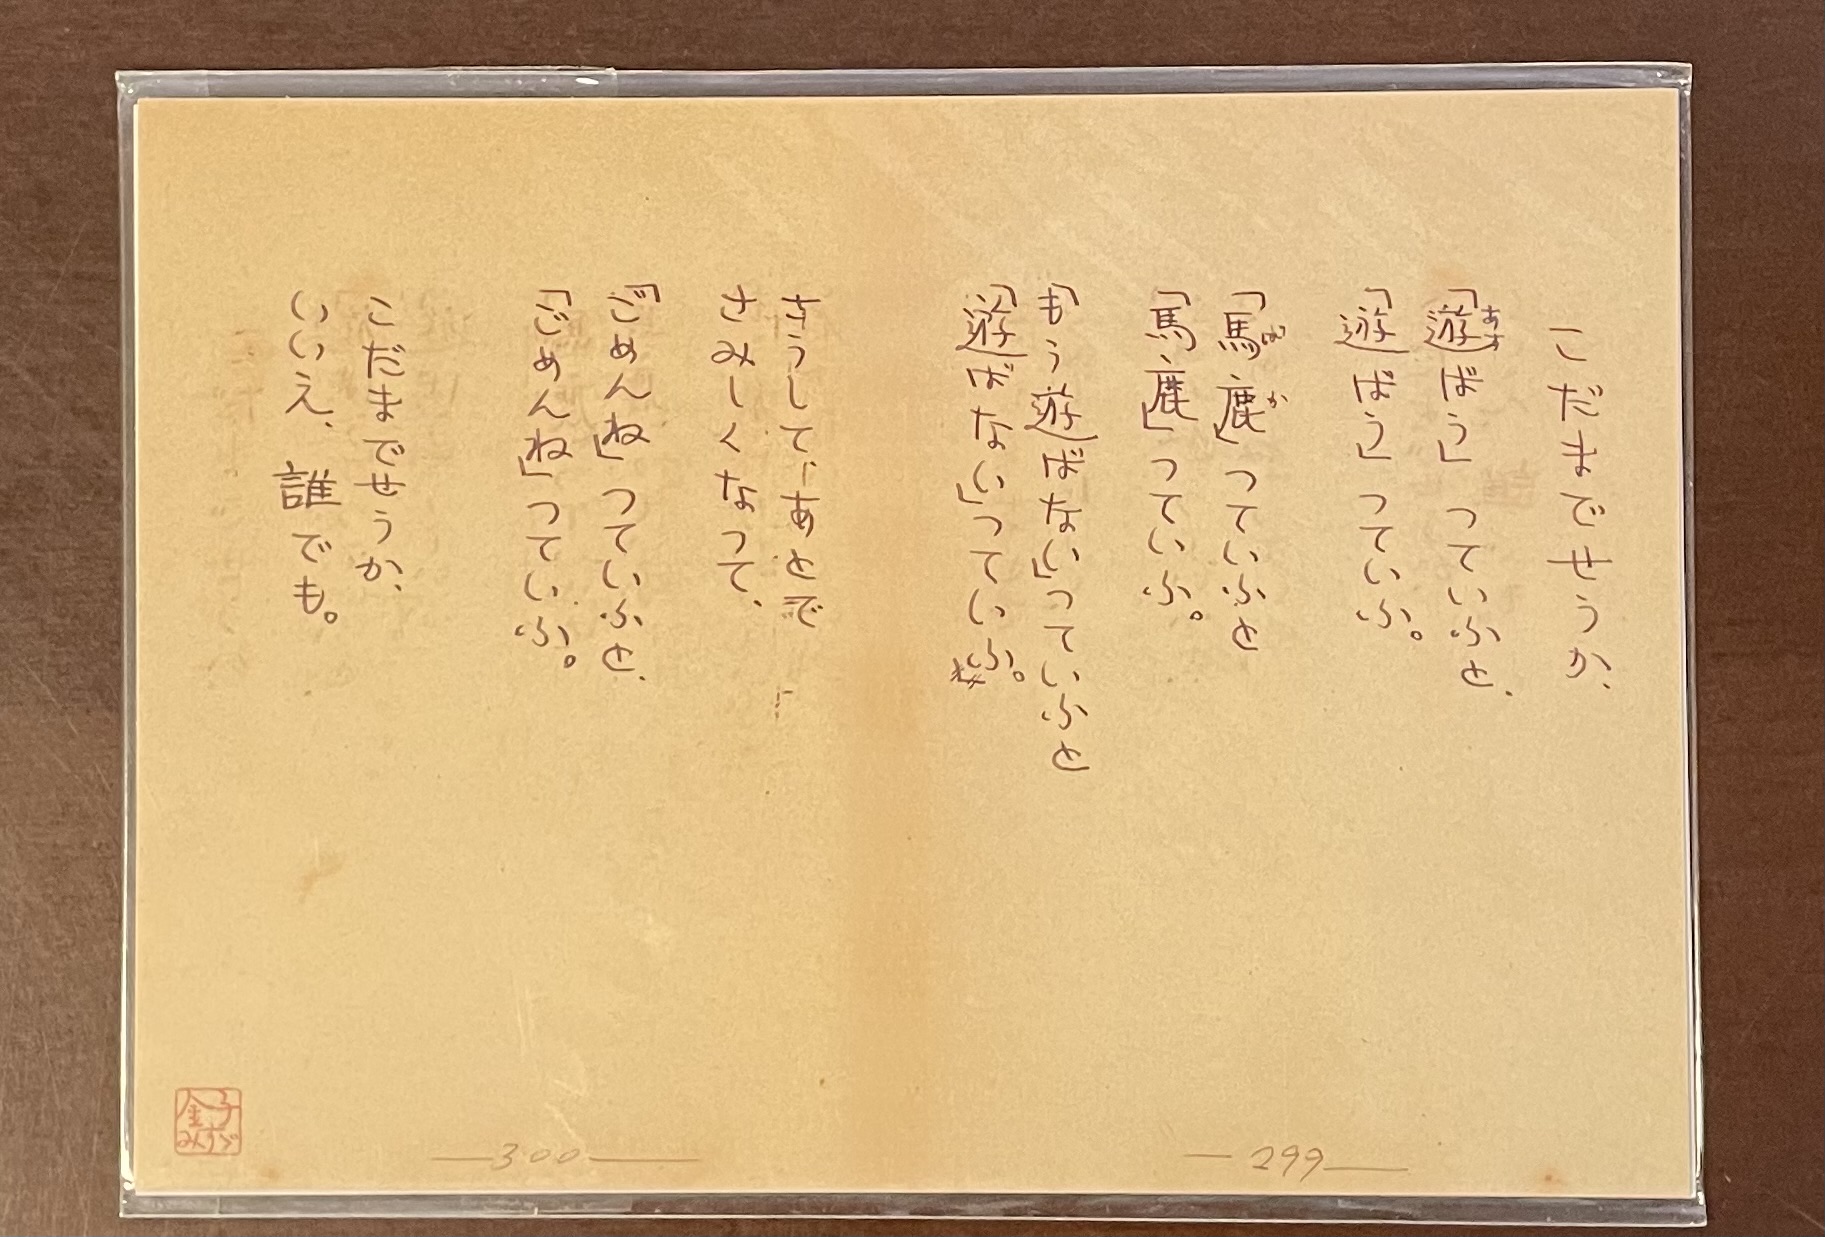 こだまでせうか、
「遊ばう」っていふと、
「遊ばう」っていふ。
「馬鹿」っていふと
「馬鹿」っていふ。
「もう遊ばない」っていふと
「遊ばない」っていふ。
さうして、あとで
さみしくなって、
「ごめんね」っていふと、
「ごめんね」っていふ。
こだまでせうか、
いいえ、誰でも。
299
300
金子
みすゞ